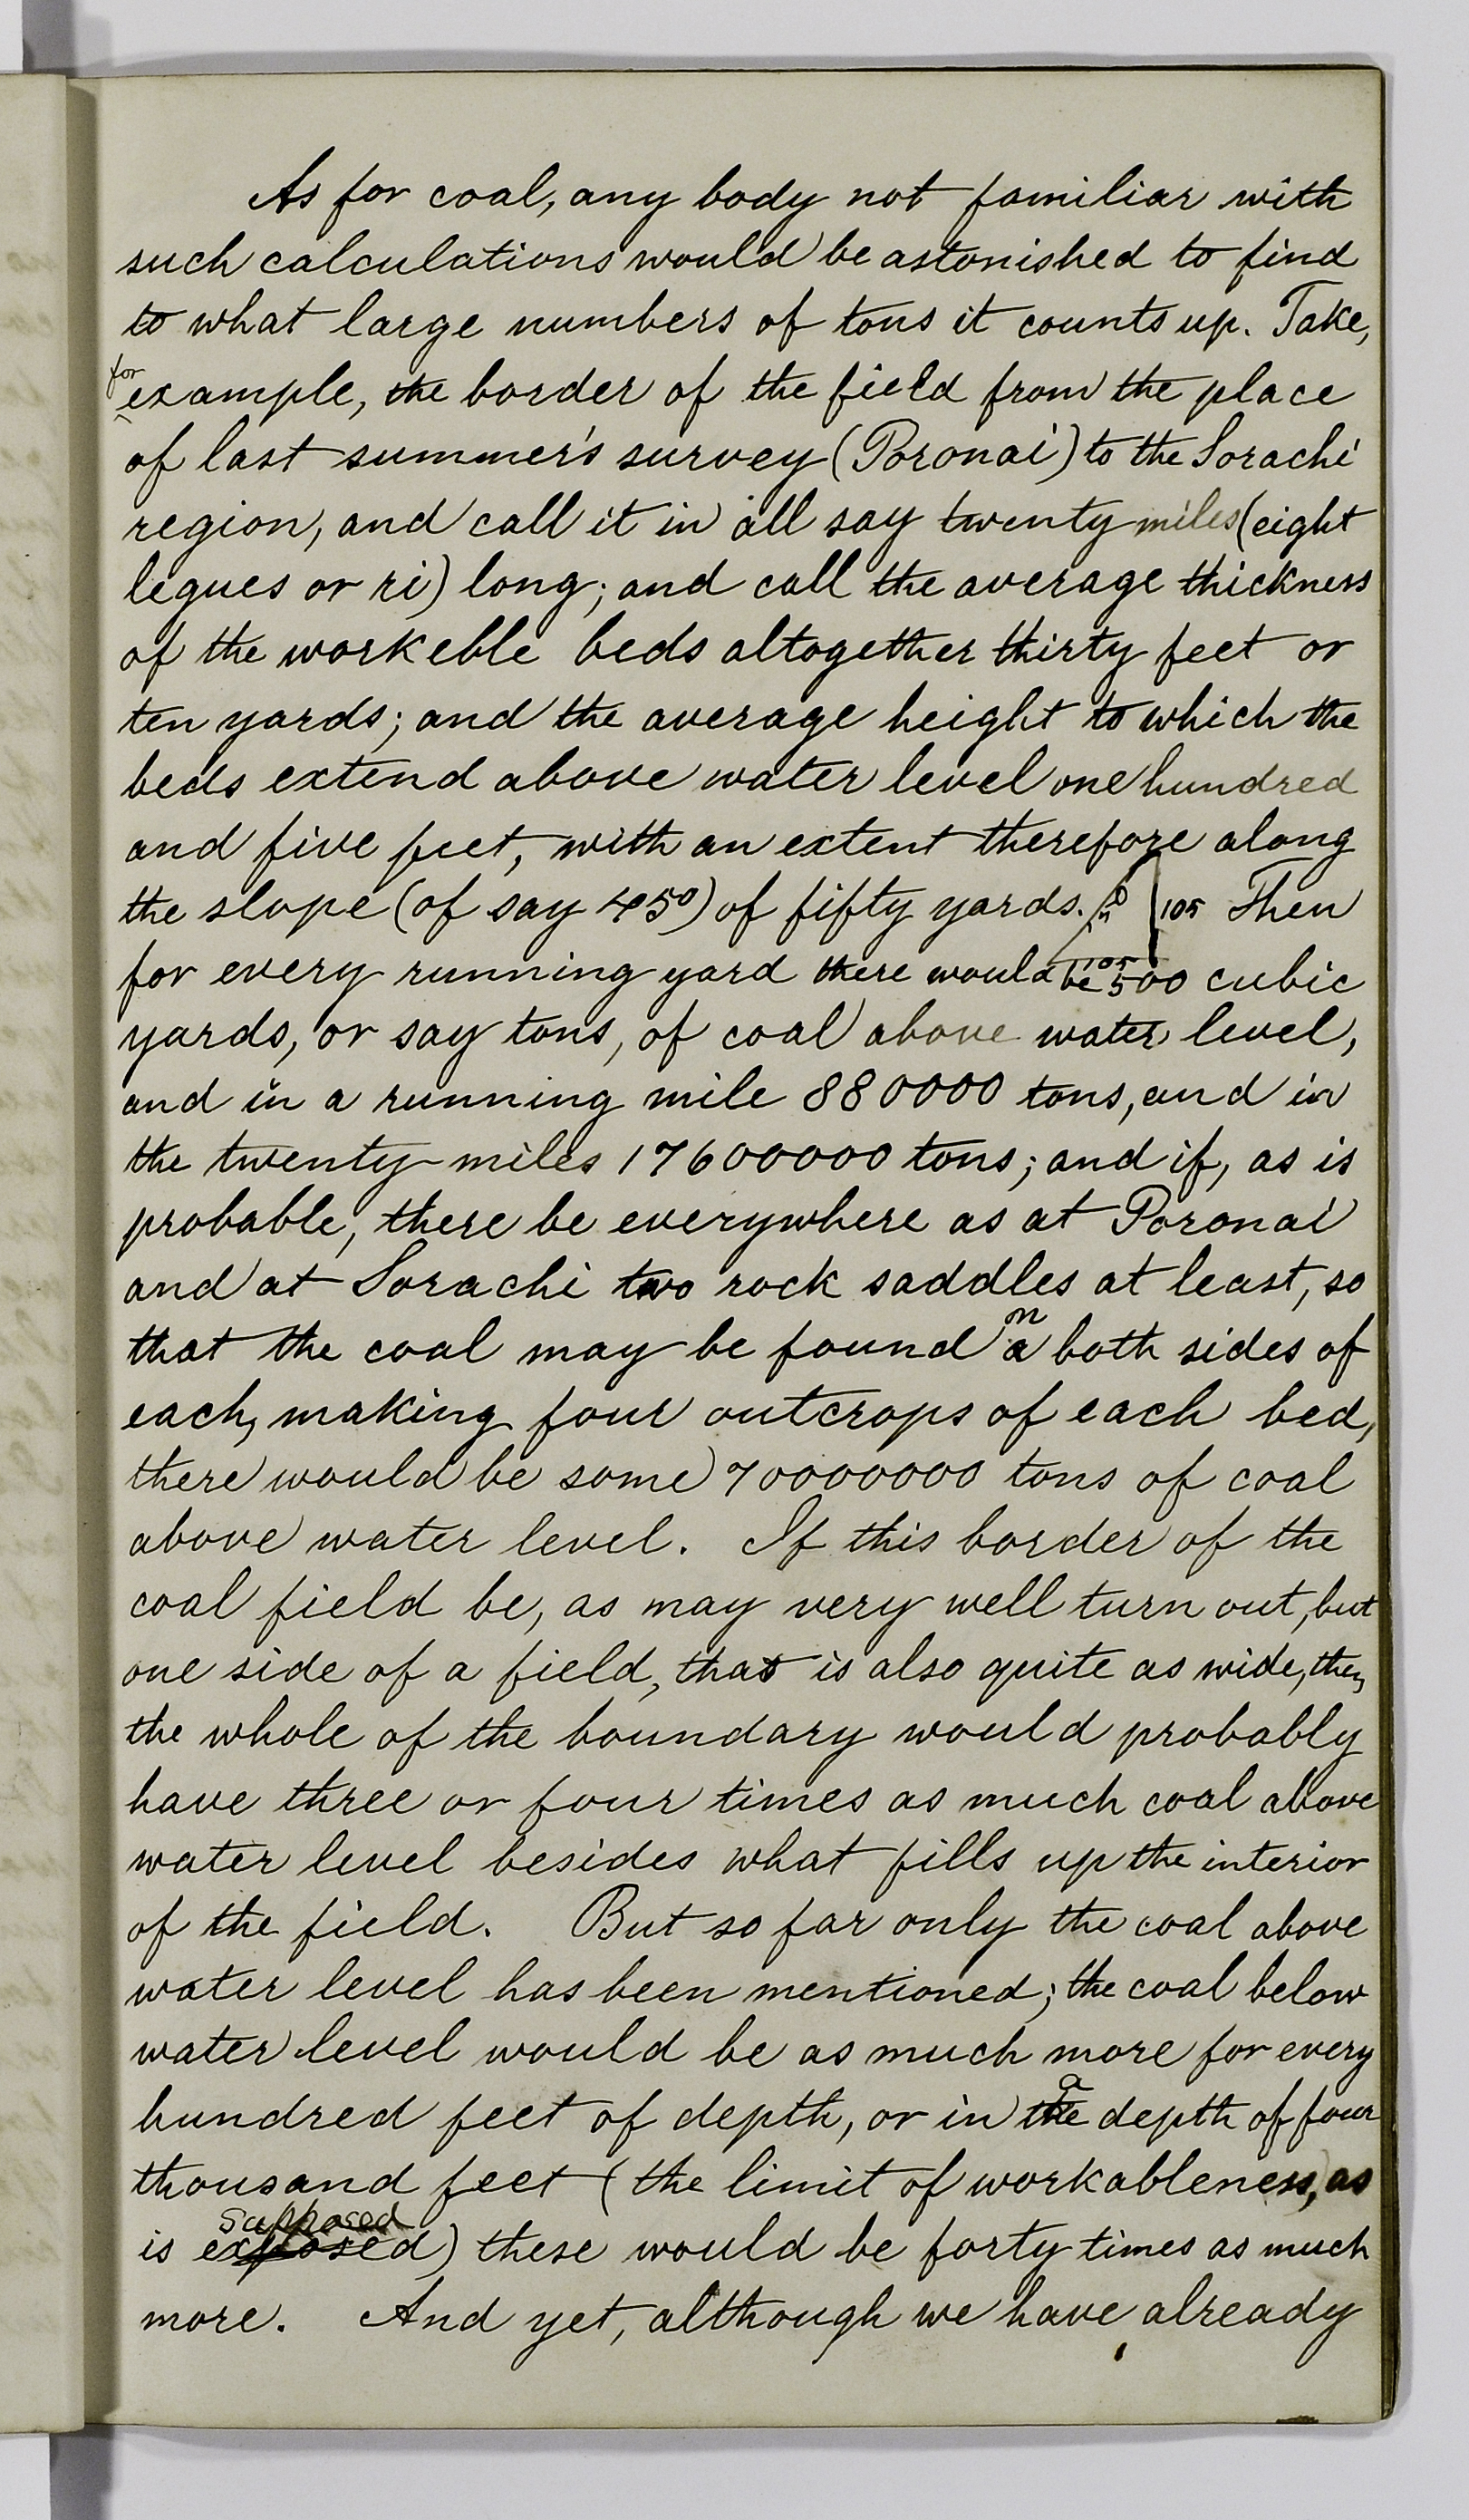 As for coal, any body not familiar with
such calculations would be astonished to find
to what large numbers of tons it counts up. Take,
for
example, the border of the field from the place
of last summer's survey (Poronai) to the Sorachi
region, and call it in all say twenty miles (eight
legues or ri) long; and call the average thickness
of the workeble beds altogether thirty feet or
ten yards; and the average height to which the
beds extend above water level one hundred
and five feet, with an extent therefore along
the slope (of say 45°) of fifty yards. 105 Then
105
for every running yard there would be 500 cubic
yards, or say tons, of coal above water level,
and in a running mile 880000 tons, and in
the twenty miles 17600000 tons; and if, as is
probable, there be everywhere as at Poronai
and at Sorachi two rock saddles at least, so
that the coal may be found on both sides of
each, making four outcrops of each bed,
there would be some 70000000 tons of coal
above water level. If this border of the
coal field be, as may very well turn out, but
one side of a field, that is also quite as wide, then
the whole of the boundary would probably
have three or four times as much coal above
water level besides what fills up the interior
of the field. But so far only the coal above
water level has been mentioned; the coal below
water level would be as much more for every
a
hundred feet of depth, or in the depth of four
thousand feet (the limit of workableness, as
supposed
is exposed) these would be forty times as much
more. And yet, although we have already